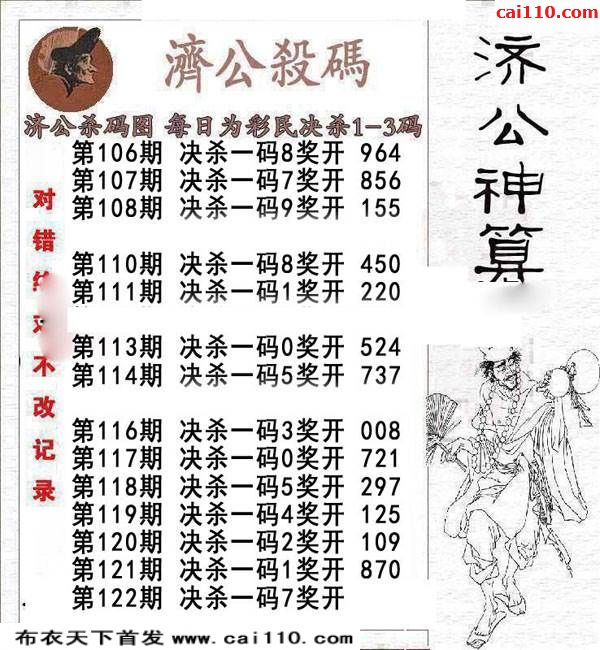 cai110.com
濟公殺碼
济公杀码图 每日为彩民决杀1-3码
第106期 决杀一码8奖开 964
第107期 决杀一码7奖开 856
第108期 决杀一码9奖开 155
第110期 决杀一码8奖开 450
第111期 决杀一码1奖开 220
第113期 决杀一码0奖开 524
第114期 决杀一码5奖开 737
第116期 决杀一码3奖开 008
第117期 决杀一码0奖开 721
第118期 决杀一码5奖开 297
第119期 决杀一码4奖开 125
第120期 决杀一码2奖开 109
第121期 决杀一码1奖开 870
第122期 决杀一码7奖开
对错
不改记录
济公神算
布衣天下首发 www.cai110.com